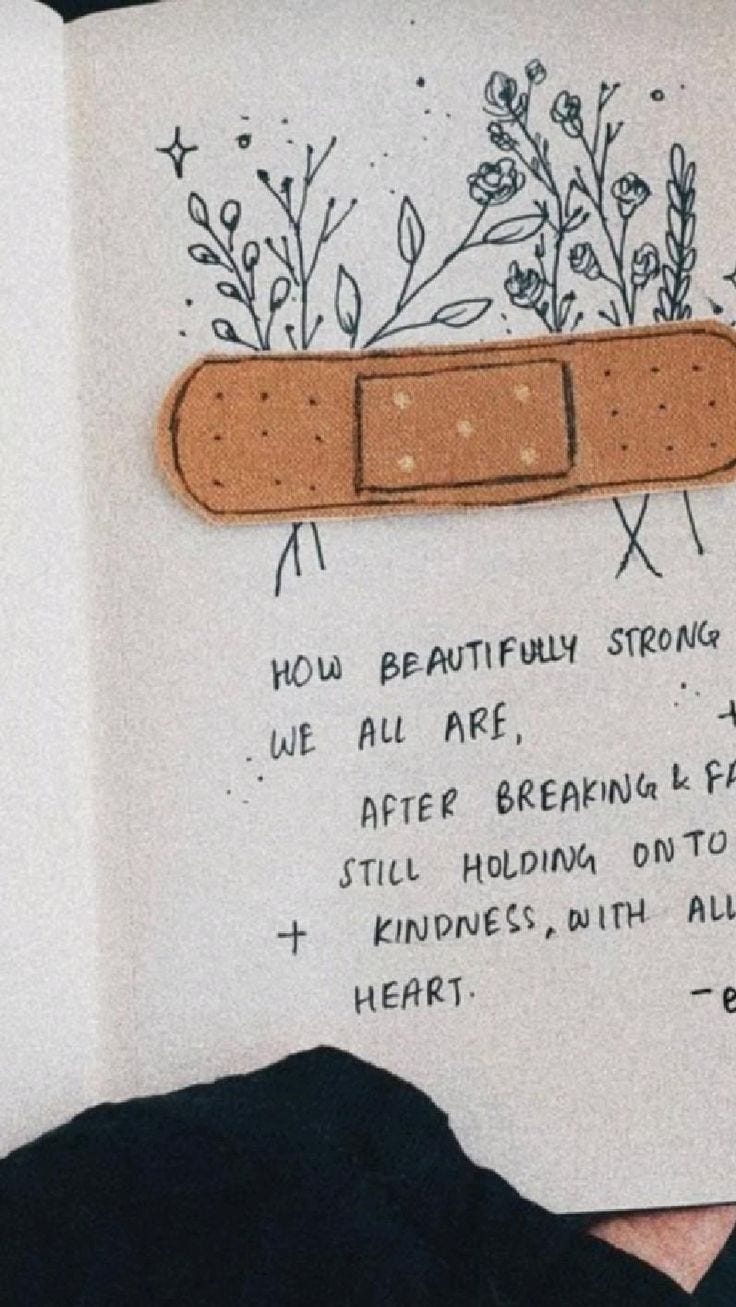 HOW BEAUTIFULLY STRONG
WE ALL ARE,
AFTER BREAKING &
STILL HOLDING ONTO
KINDNESS, WITH ALL
HEART.